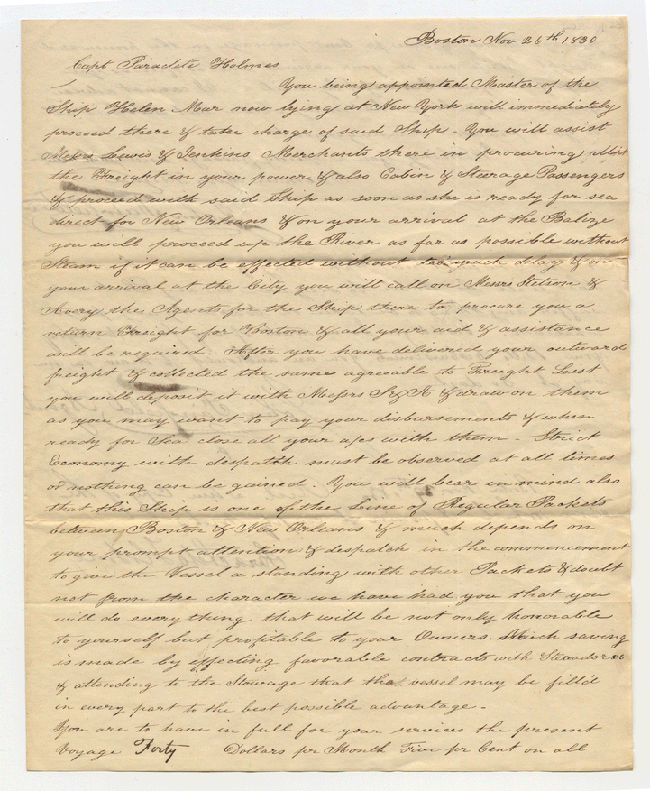 Boston Nov 26th 1830
Capt Paraclete Holmes
You being appointed Master of the
Ship Helen Mar now lying at New York will immediately
proceed there & take charge of said Ship. You will assist
Messrs Lewis & Jenkins Merchants there in procuring all
the Freight in your power & also Cabin & Steerage Passengers
& proceed with said Ship as soon as she is ready for sea
direct for New Orleans & on your arrival at the Balize
you will proceed up the River as far as possible without
Steam if it can be effected without too much delay & on
your arrival at the City you will call on Messrs Stetson &
Avery the Agents for the Ship there to procure you a
return Freight for Boston & all your aid & assistance
will be required. After you have delivered your outward
freight & collected the same agreeable to Freight List
you will deposit it with Messrs S & A & draw on them
as you may want to pay your disbursements & when
ready for Sea close all your a/cs with them - Strict
Economy with despatch must be observed at all times
or nothing can be gained. You will bear in mind also
that this Ship is one of the Line of Regular Packets
between Boston & New Orleans & much depends on
your prompt attention & despatch in the commencement
to give the Vessel a standing with other Packets & doubt
not from the character we have had you that you
will do every thing that will be not only honorable
to yourself but profitable to your Owners. Much saving
is made by effecting favorable contracts with Stevedores
& attending to the Stowage that the vessel may be filld
in every part to the best possible advantage.
You are to have in full for your services the present
Voyage Forty Dollars per Month Five per Cent on all